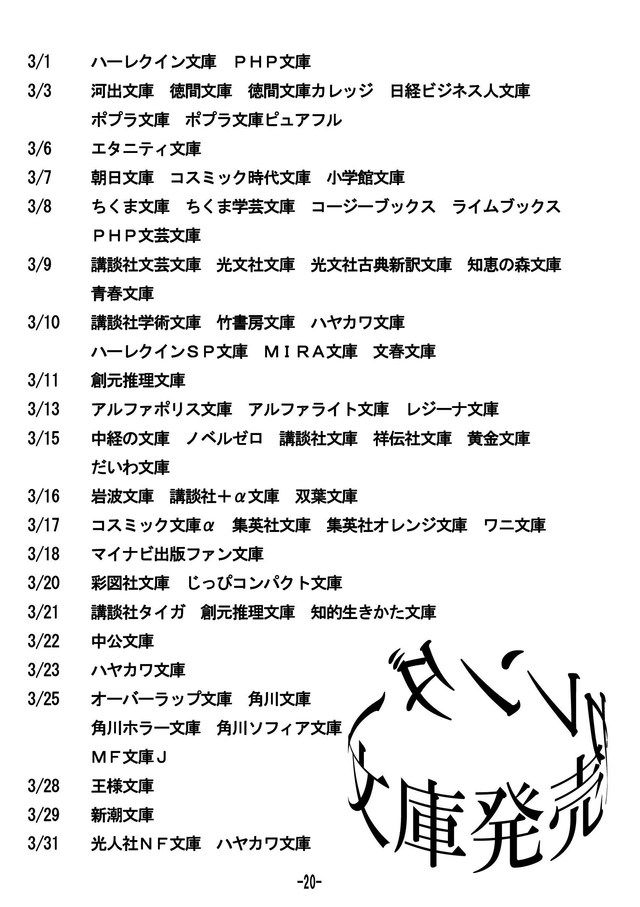 3/1 ハーレクイン文庫 ＰＨＰ文庫
3/3 河出文庫 徳間文庫 徳間文庫カレッジ 日経ビジネス人文庫
ポプラ文庫 ポプラ文庫ピュアフル
3/6 エタニティ文庫
3/7 朝日文庫 コスミック時代文庫 小学館文庫
3/8 ちくま文庫 ちくま学芸文庫 コージーブックス ライムブックス
ＰＨＰ文芸文庫
3/9 講談社文芸文庫 光文社文庫 光文社古典新訳文庫 知恵の森文庫
青春文庫
3/10 講談社学術文庫 竹書房文庫 ハヤカワ文庫
ハーレクインＳＰ文庫 ＭＩＲＡ文庫 文春文庫
3/11 創元推理文庫
3/13 アルファポリス文庫 アルファライト文庫 レジーナ文庫
3/15 中経の文庫 ノベルゼロ 講談社文庫 祥伝社文庫 黄金文庫
だいわ文庫
3/16 岩波文庫 講談社＋α文庫 双葉文庫
3/17 コスミック文庫α 集英社文庫 集英社オレンジ文庫 ワニ文庫
3/18 マイナビ出版ファン文庫
3/20 彩図社文庫 じっぴコンパクト文庫
3/21 講談社タイガ 創元推理文庫 知的生きかた文庫
3/22 中公文庫
3/23 ハヤカワ文庫
3/25 オーバーラップ文庫 角川文庫
角川ホラー文庫 角川ソフィア文庫
ＭＦ文庫Ｊ
3/28 王様文庫
3/29 新潮文庫
3/31 光人社ＮＦ文庫 ハヤカワ文庫
文庫発売
レンダ
-20-